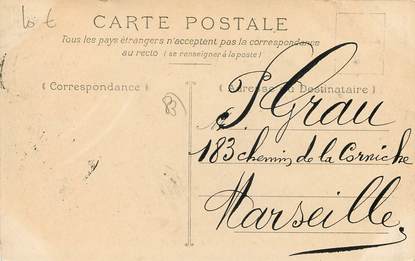 10 €
CARTE POSTALE
Tous les pays étrangers n'acceptent pas la correspondance
au recto (se renseigner à la poste)
( Correspondance )
( Adresse du Destinataire )
83
P Grau
183 chemin de la Corniche
Marseille